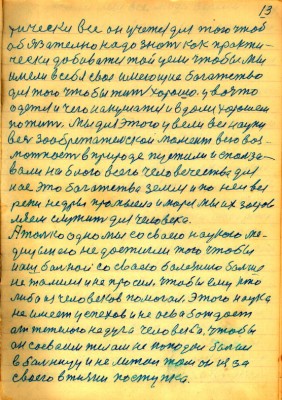 13
тически все он учетел для того чтоб
обязателно надо знат как практи-
чески добиватся той цели чтобы мы
имели в себя своё имеющие богатство
для того чтобы жит хорошо. у во что
одется и чего накушатся и в доме хорошем
пожит. Мы для этого увели все науки
всех зообретателский момент всю воз-
можност в природе пустили и показа-
вали на благо всего человечества для
нас это богатства земли и по ней все
реки недры промысла и моря мы их заув
ляем служит для человека.
А толко одно мы со своего научного ме-
дицинаго не достигли того чтобы
наш балной со своего болезнию болше
не болел и не просил, чтобы ему кто
либо из человеков помогал. Этого наука
не имеет успехов и не освабождает
от тяжелого недуга человека, чтобы
он со своем телом не попадал болше
в балницу и не литал там он из за
своего в жизни поступка.